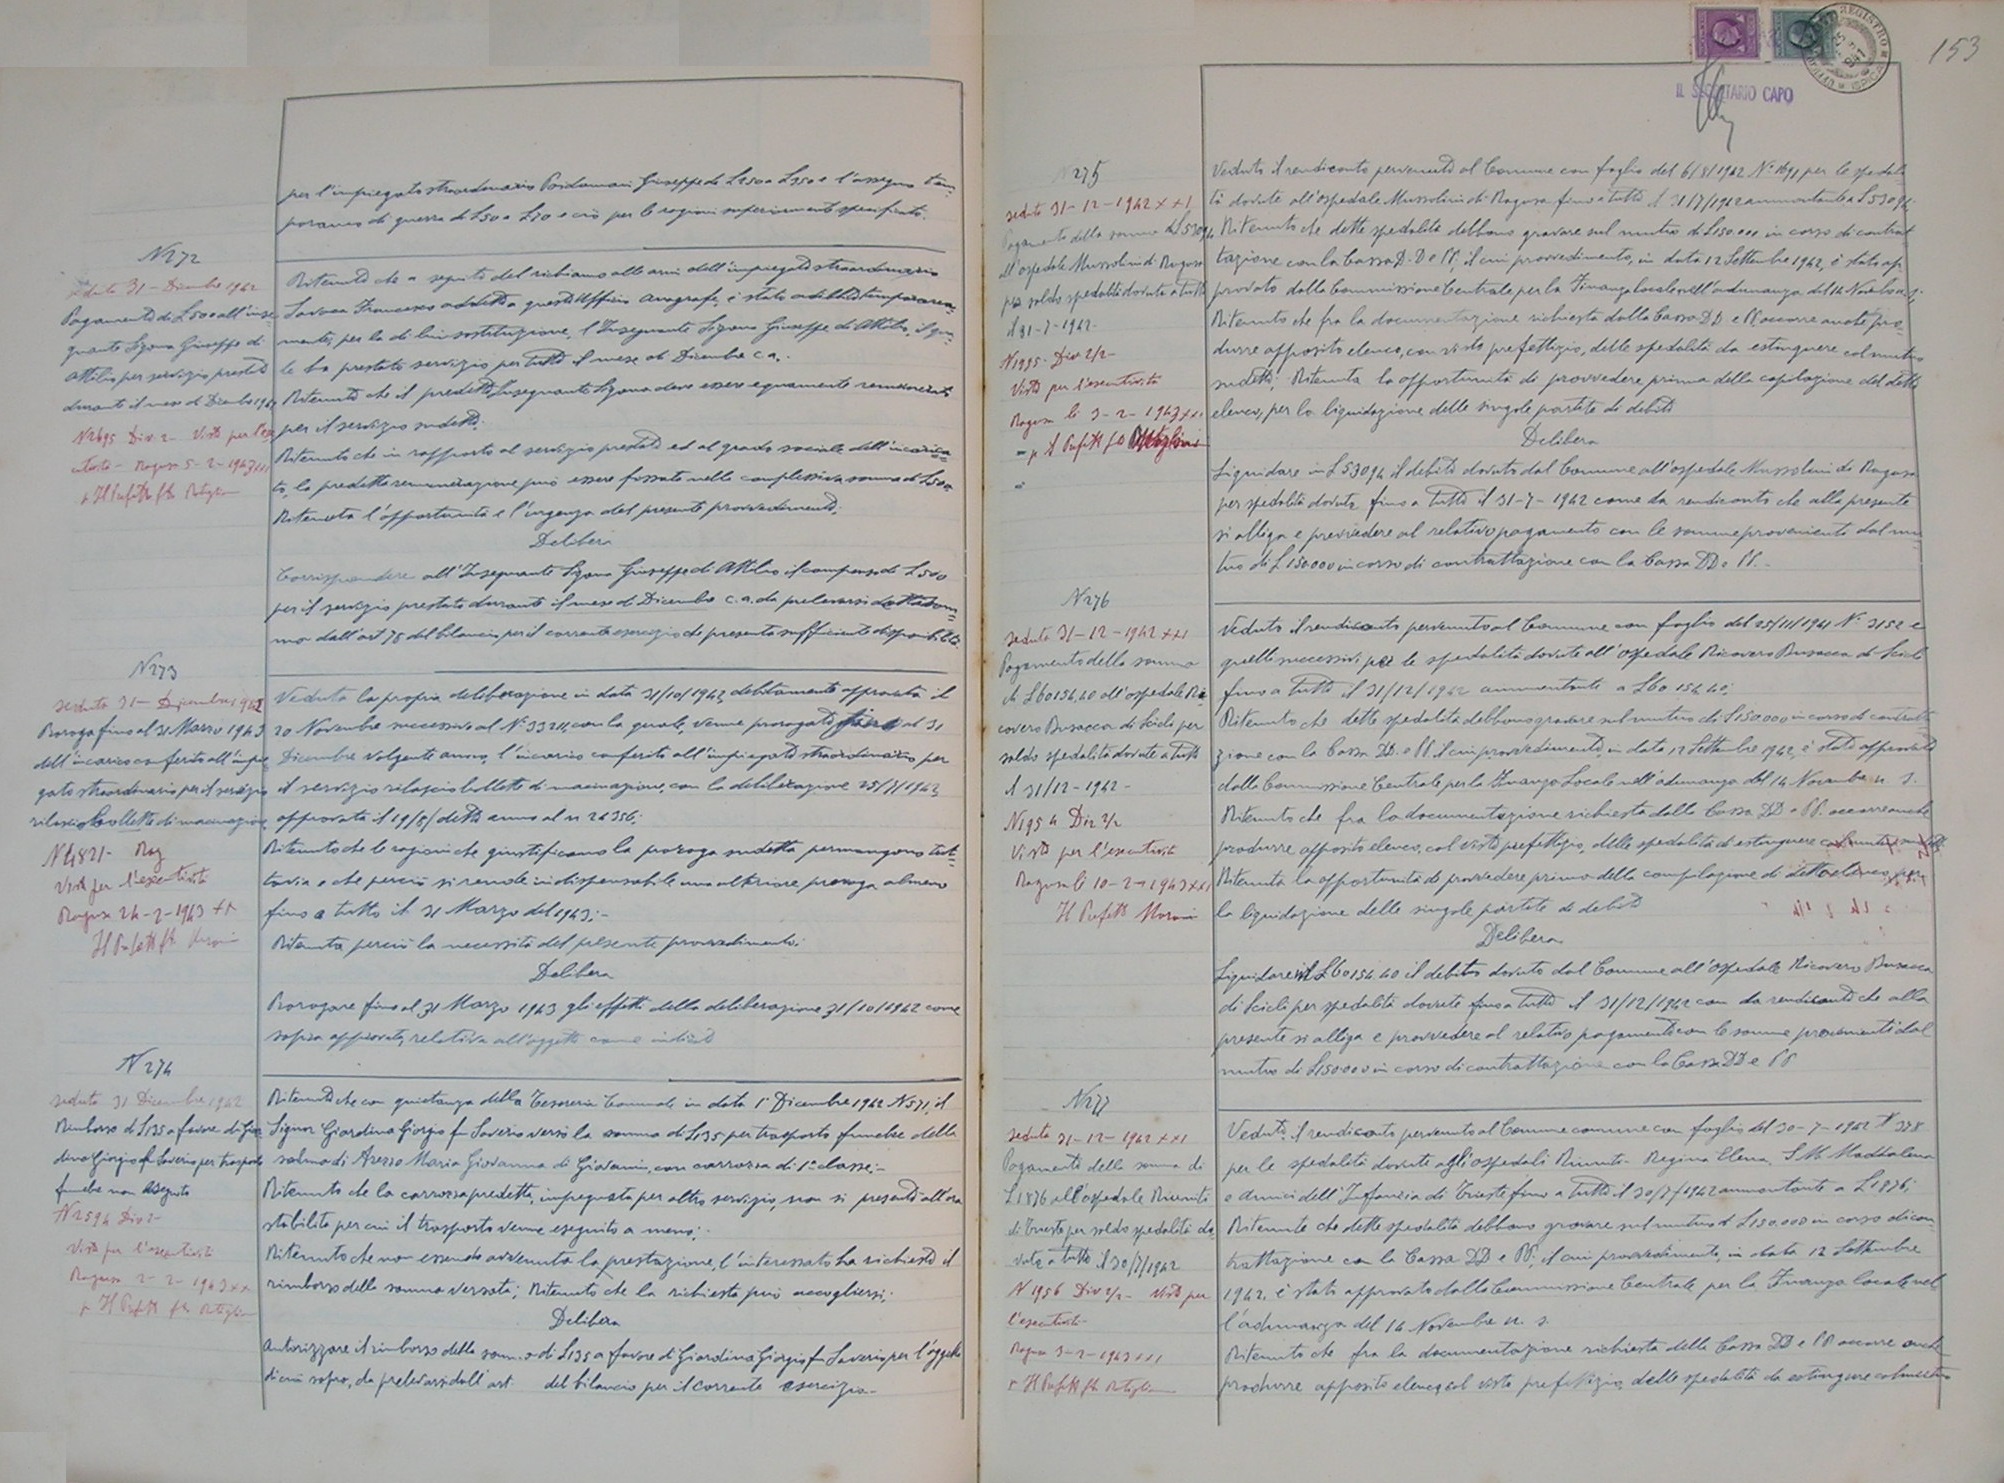 per l'impiegato straordinario Giuseppe da L250 a L350 e l'assegno tem=
poraneo di guerra da L50 a L70 e ciò per le ragioni superiormente specificate.
N 272
seduta 31 - Dicembre 1942
Pagamento di L 500 all'inse=
gnante Giuseppe di
Attilio per servizio prestato
durante il mese di Dicembre 1942
N 2695 Div. 2 - Visto per l'ese
cutività - Ragusa 5-2-1943 XXI
p Il Prefetto fto
Ritenuto che a seguito del richiamo alle armi dell'impiegato straordinario
Francesco addetto a quest'Ufficio Anagrafe, è stato adibito temporanea=
mente, per la di lui sostituzione, l'Insegnante Giuseppe di Attilio, il qua=
le ha prestato servizio per tutto il mese di Dicembre c.a.;
Ritenuto che il predetto Insegnante deve essere equamente remunerato
per il servizio sudetto;
Ritenuto che in rapporto al servizio prestato ed al grado sociale dell'incarica=
to, la predetta remunerazione può essere fissata nella complessiva somma di L500
Ritenuta l'opportunità e l'urgenza del presente provvedimento;
Delibera
Corrispondere all'Insegnante Giuseppe di Attilio il compenso di L 500
per il servizio prestato durante il mese di Dicembre c.a. da prelevarsi
dall'art 78 del bilancio per il corrente esercizio che presenta sufficiente disponibilità.
N 273
seduta 31 - Dicembre 1942
Proroga fino al 31 Marzo 1943
dell'incarico conferito all'impie=
gato straordinario per il servizio
rilascio bollette di macinazione
N 4821 - Rag
Visto per l'esecutività
Ragusa 24-2-1943 XXI
Il Prefetto fto
Veduta la propria deliberazione in data 31/10/1942, debitamente approvata il
20 Novembre successivo al N° con la quale, venne prorogato fino al 31
Dicembre volgente anno, l'incarico conferito all'impiegato straordinario per
il servizio rilascio bollette di macinazione, con la deliberazione 25/7/1942
approvata il 19/8/ detto anno al n 26356;
Ritenuto che le ragioni che giustificano la proroga sudetta permangono tut=
tavia e che perciò si rende indispensabile una ulteriore proroga almeno
fino a tutto il 31 Marzo del 1943; -
Ritenuta perciò la necessità del presente provvedimento:
Delibera
Prorogare fino al 31 Marzo 1943 gli effetti della deliberazione 31/10/1942 come
sopra approvata, relativa all'oggetto come indicato
N 274
seduta 31 Dicembre 1942
Rimborso di L135 a favore di Giar
dina Giorgio fu Saverio per trasporto
funebre non eseguito
N 2594 Div 2 -
Visto per l'esecutività
Ragusa 2-2-1943 XXI
p Il Prefetto fto
Ritenuto che con quietanza della Tesoreria Comunale in data 1° Dicembre 1942 N571, il
Signor Giardina Giorgio fu Saverio versò la somma di L135 per trasporto funebre della
salma di Arezzo Maria Giovanna di Giovanni, con carrozza di 1ª classe; -
Ritenuto che la carrozza predetta, impegnata per altro servizio, non si presentò all'ora
stabilita per cui il trasporto venne eseguito a meno;
Ritenuto che non essendo avvenuta la prestazione, l'interessato ha richiesto il
rimborso della somma versata; Ritenuto che la richiesta può accogliersi;
Delibera
Autorizzare il rimborso della somma di L135 a favore di Giardina Giorgio fu Saverio, per l'oggetto
di cui sopra, da prelevarsi dall'art. del bilancio per il corrente esercizio -
153
IL SEGRETARIO CAPO
N 275
seduta 31-12-1942 XXI
Pagamento della somma di L53094
all'ospedale Mussolini di Ragusa
per saldo spedalità dovute a tutto
il 31-7-1942 -
N 1995 - Div 2/2 -
Visto per l'esecutività
Ragusa li 3-2-1943 XXI
p Il Prefetto fto
Veduto il rendiconto pervenuto al Comune con foglio del 6/8/1942 N° 1691 per le spedali=
tà dovute all'ospedale Mussolini di Ragusa fino a tutto il 31/7/1942 ammontante a L53094;
Ritenuto che dette spedalità debbono gravare sul mutuo di L150.000 in corso di contrat
tazione con la Cassa D.D e PP, il cui provvedimento, in data 12 Settembre 1942, è stato ap
provato dalla Commissione Centrale per la Finanza Locale nell'adunanza del 14 Novembre u.s;
Ritenuto che fra la documentazione richiesta dalla Cassa DD e PP occorre anche pro=
durre apposito elenco, con visto prefettizio, delle spedalità da estinguere col mutuo
sudetto; Ritenuta la opportunità di provvedere prima della copilazione del detto
elenco, per la liquidazione delle singole partite di debito
Delibera
Liquidare in L53094 il debito dovuto dal Comune all'ospedale Mussolini di Ragusa
per spedalità dovute fino a tutto il 31-7-1942 come da rendiconto che alla presente
si alliga e provvedere al relativo pagamento con le somme proveniente dal mu=
tuo di L150000 in corso di contrattazione con la Cassa DD e PP. -
N 276
seduta 31-12-1942 XXI
Pagamento della somma
di L60154,40 all'ospedale Ri
covero Busacca di Scicli per
saldo spedalità dovute a tutto
il 31/12-1942 -
N 1954 Div 2/2
Visto per l'esecutività
Ragusa li 10-2-1943 XXI
Il Prefetto
Veduto il rendiconto pervenuto al Comune con foglio del 25/11/1941 N° 3152 e
quelli successivi per le spedalità dovute all'ospedale Ricovero Busacca di Scicli
fino a tutto il 31/12/1942 ammontante a L60154.40;
Ritenuto che dette spedalità debbono gravare sul mutuo di L150000 in corso di contratta
zione con la Cassa DD. e PP. il cui provvedimento, in data 12 Settembre 1942, è stato approvato
dalla Commissione Centrale per la Finanza Locale nell'adunanza del 14 Novembre u. s.
Ritenuto che fra la documentazione richiesta dalla Cassa DD e PP. occorre anche
produrre apposito elenco, col visto prefettizio, delle spedalità da estinguere col mutuo sudetto
Ritenuta la opportunità di provvedere prima della compilazione di detto elenco per
la liquidazione delle singole partite di debito
Delibera
Liquidare in L60154.40 il debito dovuto dal Comune all'ospedale Ricovero Busacca
di Scicli per spedalità dovute fino a tutto il 31/12/1942 com da rendiconto che alla
presente si alliga e provvedere al relativo pagamento con le somme provenienti dal
mutuo di L150000 in corso di contrattazione con la Cassa DD e PP
N 277
seduta 31-12-1942 XXI
Pagamento della somma di
L1876 all'ospedale Riuniti
di Trieste per saldo spedalità do
vute a tutto il 30/7/1942
N 1956 Div 2/2 - Visto per
l'esecutività
Ragusa 3-2-1943 XXI
p Il Prefetto fto
Veduto il rendiconto pervenuto al Comune comune con foglio del 30-7-1942 N 378
per le spedalità dovute agli ospedali Riuniti - Regina Elena, S.M. Maddalena
e Amici dell'Infanzia di Trieste fino a tutto il 30/7/1942 ammontante a L1876;
Ritenute che dette spedalità debbono gravare sul mutuo di L150.000 in corso di con
trattazione con la Cassa DD e PP, il cui provvedimento, in data 12 Settembre
1942, è stato approvato dalla Commissione Centrale per la Finanza locale nel=
l'adunanza del 14 Novembre u. s.
Ritenuto che fra la documentazione richiesta della Cassa DD e PP occorre anche
produrre apposito elenco, col visto prefettizio, delle spedalità da estinguere col mutuo